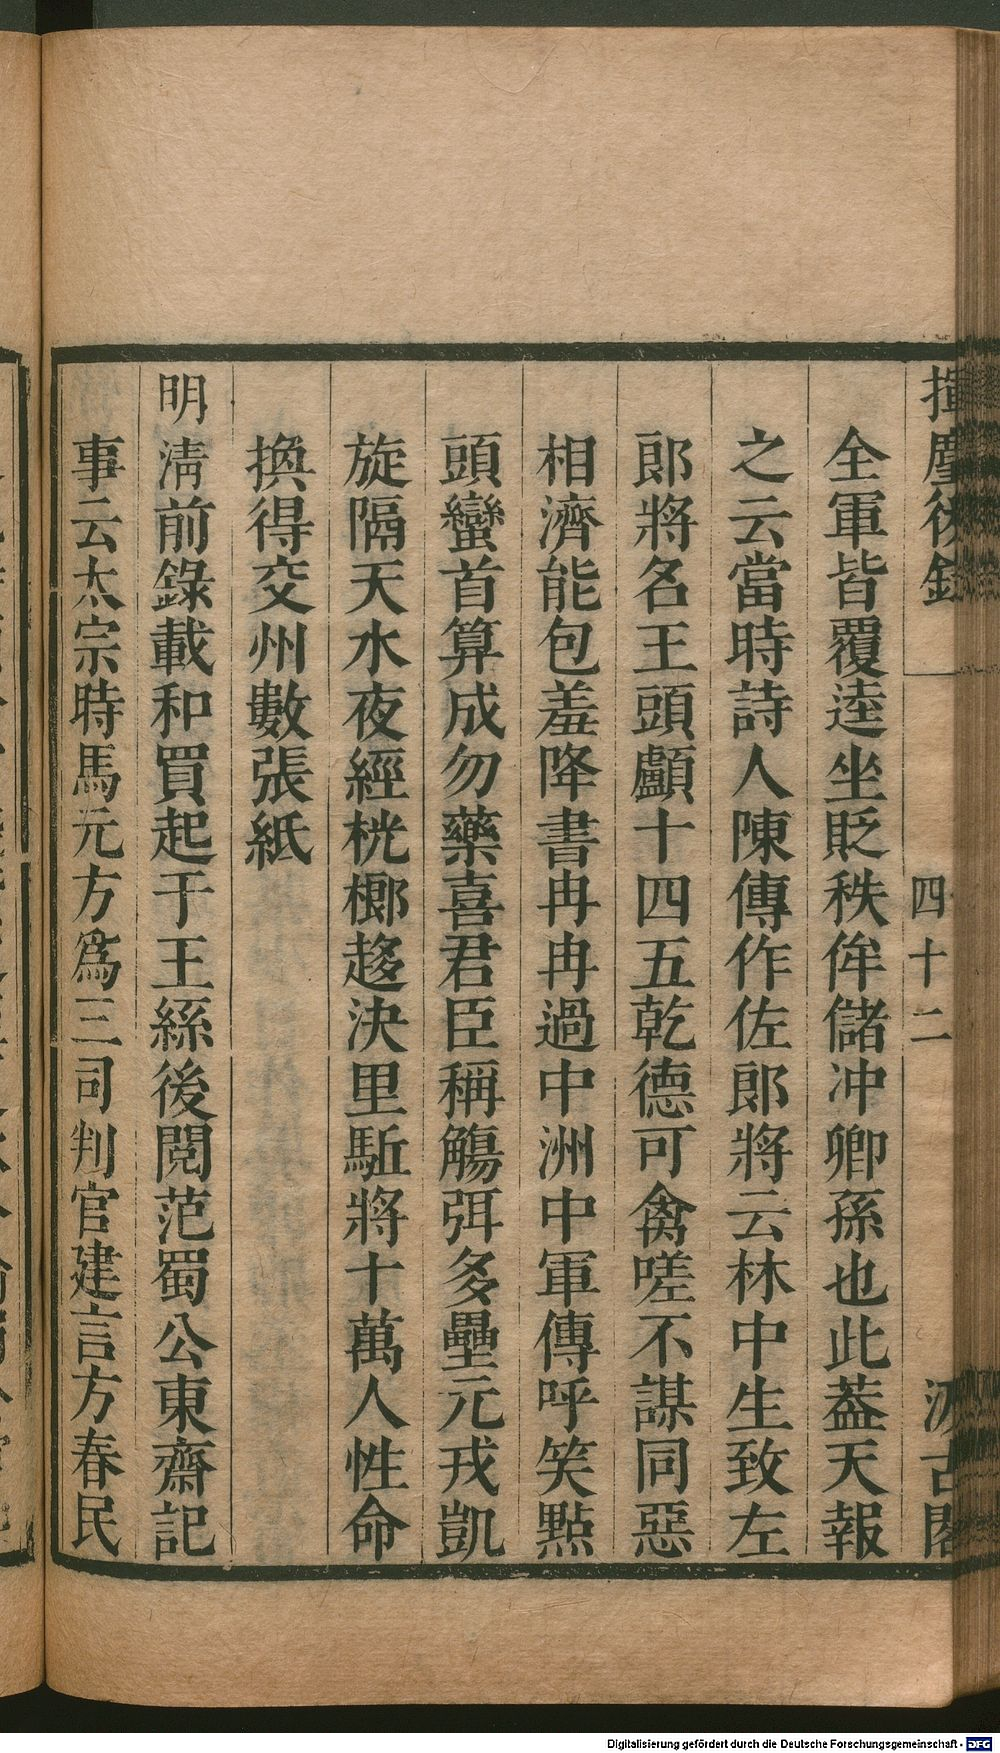 揮麈後錄
四十二
汲古閣
全軍皆覆逵坐貶秩侔儲冲卿孫也此葢天報
之云當時詩人陳傳作佐郎將云林中生致左
郎將名王頭顱十四五乾德可禽嗟不謀同惡
相濟能包羞降書冉冉過中洲中軍傳呼笑點
頭蠻首算成勿藥喜君臣稱觴弭多壘元戎凱
旋隔天水夜經桄榔趍決里駈將十萬人性命
換得交州數張紙
明清前錄載和買起于王絲後閱范蜀公東齋記
事云太宗時馬元方爲三司判官建言方春民
Digitalisierung gefördert durch die Deutsche Forschungsgemeinschaft - DFG